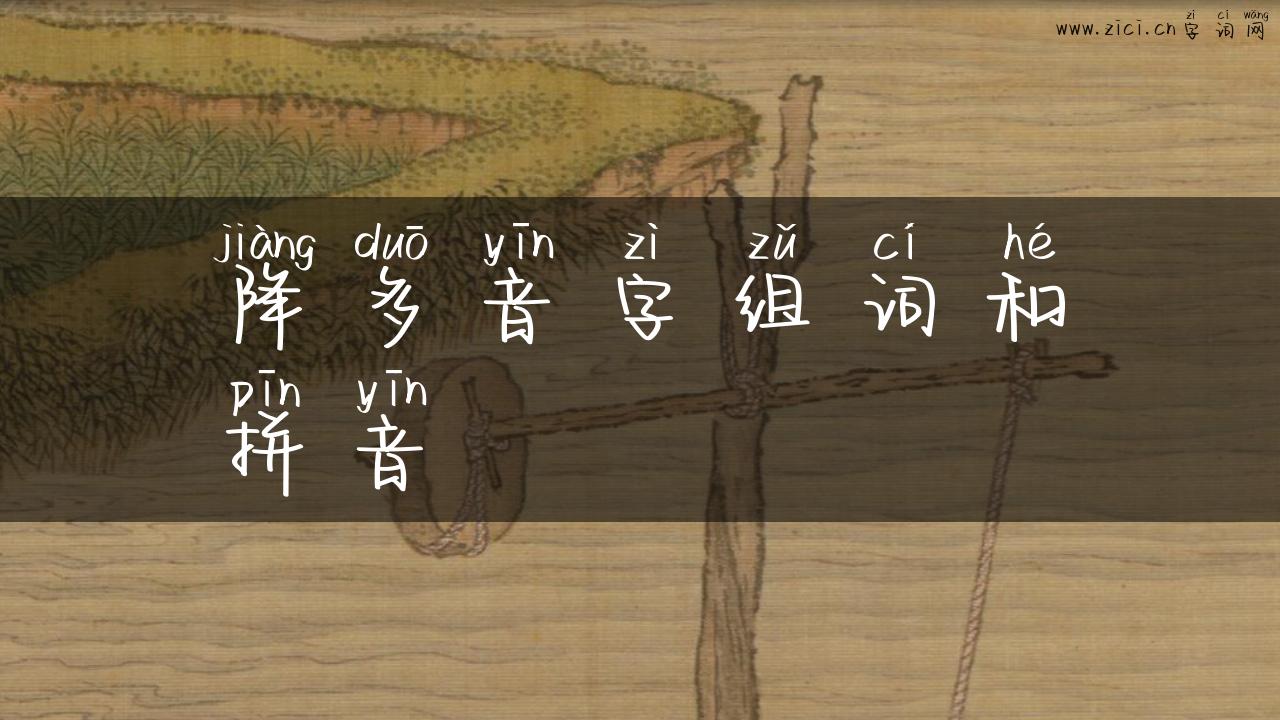 zì cí wǎng
www.zici.cn字词网
jiàng duō yīn zì zǔ cí hé
降多音字组词和
pīn yīn
拼音